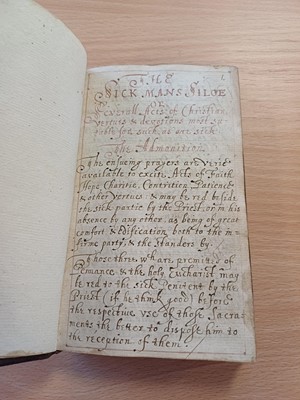 THE
SICK MANS PILOE
OR
Severall Acts of Christian
vertues & devotions most su-
table for such as are sick
The Admonition.
The ensueing prayers are verie
available to excite Acts of Faith
Hope Charitie, Contrition, Patience
& other Vertues: & may be red beside
the sick partie by the Priest, or in his
absence by any other, as being of great
comfort & Edification, both to the in-
firme party, & the standers by.
Those three, wch are premised of
Pennance & the holy Eucharist may
be red to the sick Penitent by the
Priest (if he think good) before
the respective use of those Sacra-
ments the better to dispose him to
the reception of them.